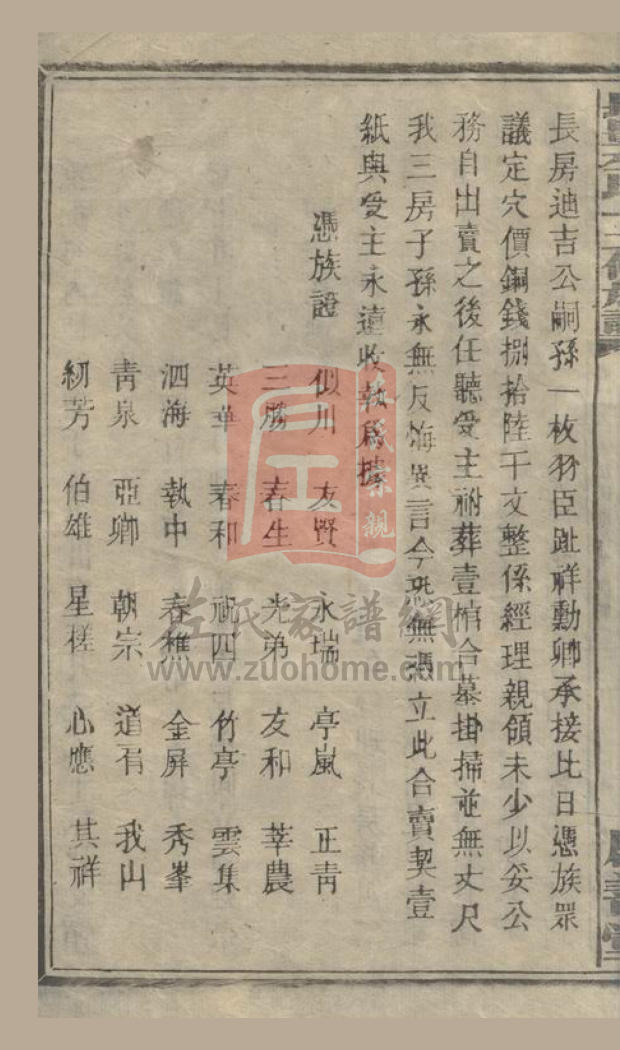 長房迪吉公嗣孫一枚羽臣趾祥勳卿承接比日憑族眾
議定穴價銅錢捌拾陸千文整係經理親領未少以妥公
務自出賣之後任聽受主祔葬壹棺合墓掛掃並無丈尺
我三房子孫永無反悔異言今恐無憑立此合賣契壹
紙與受主永遠收執爲據
憑族證
似川 友賢 永瑞 亭嵐 正青
三勝 春生 光弟 友和 莘農
英華 春和 祝四 竹亭 雲集
泗海 執中 春樵 金屏 秀峯
青泉 亞卿 朝宗 道有 我山
紉芳 伯雄 星槎 心應 其祥
左氏家譜網
www.zuohome.com